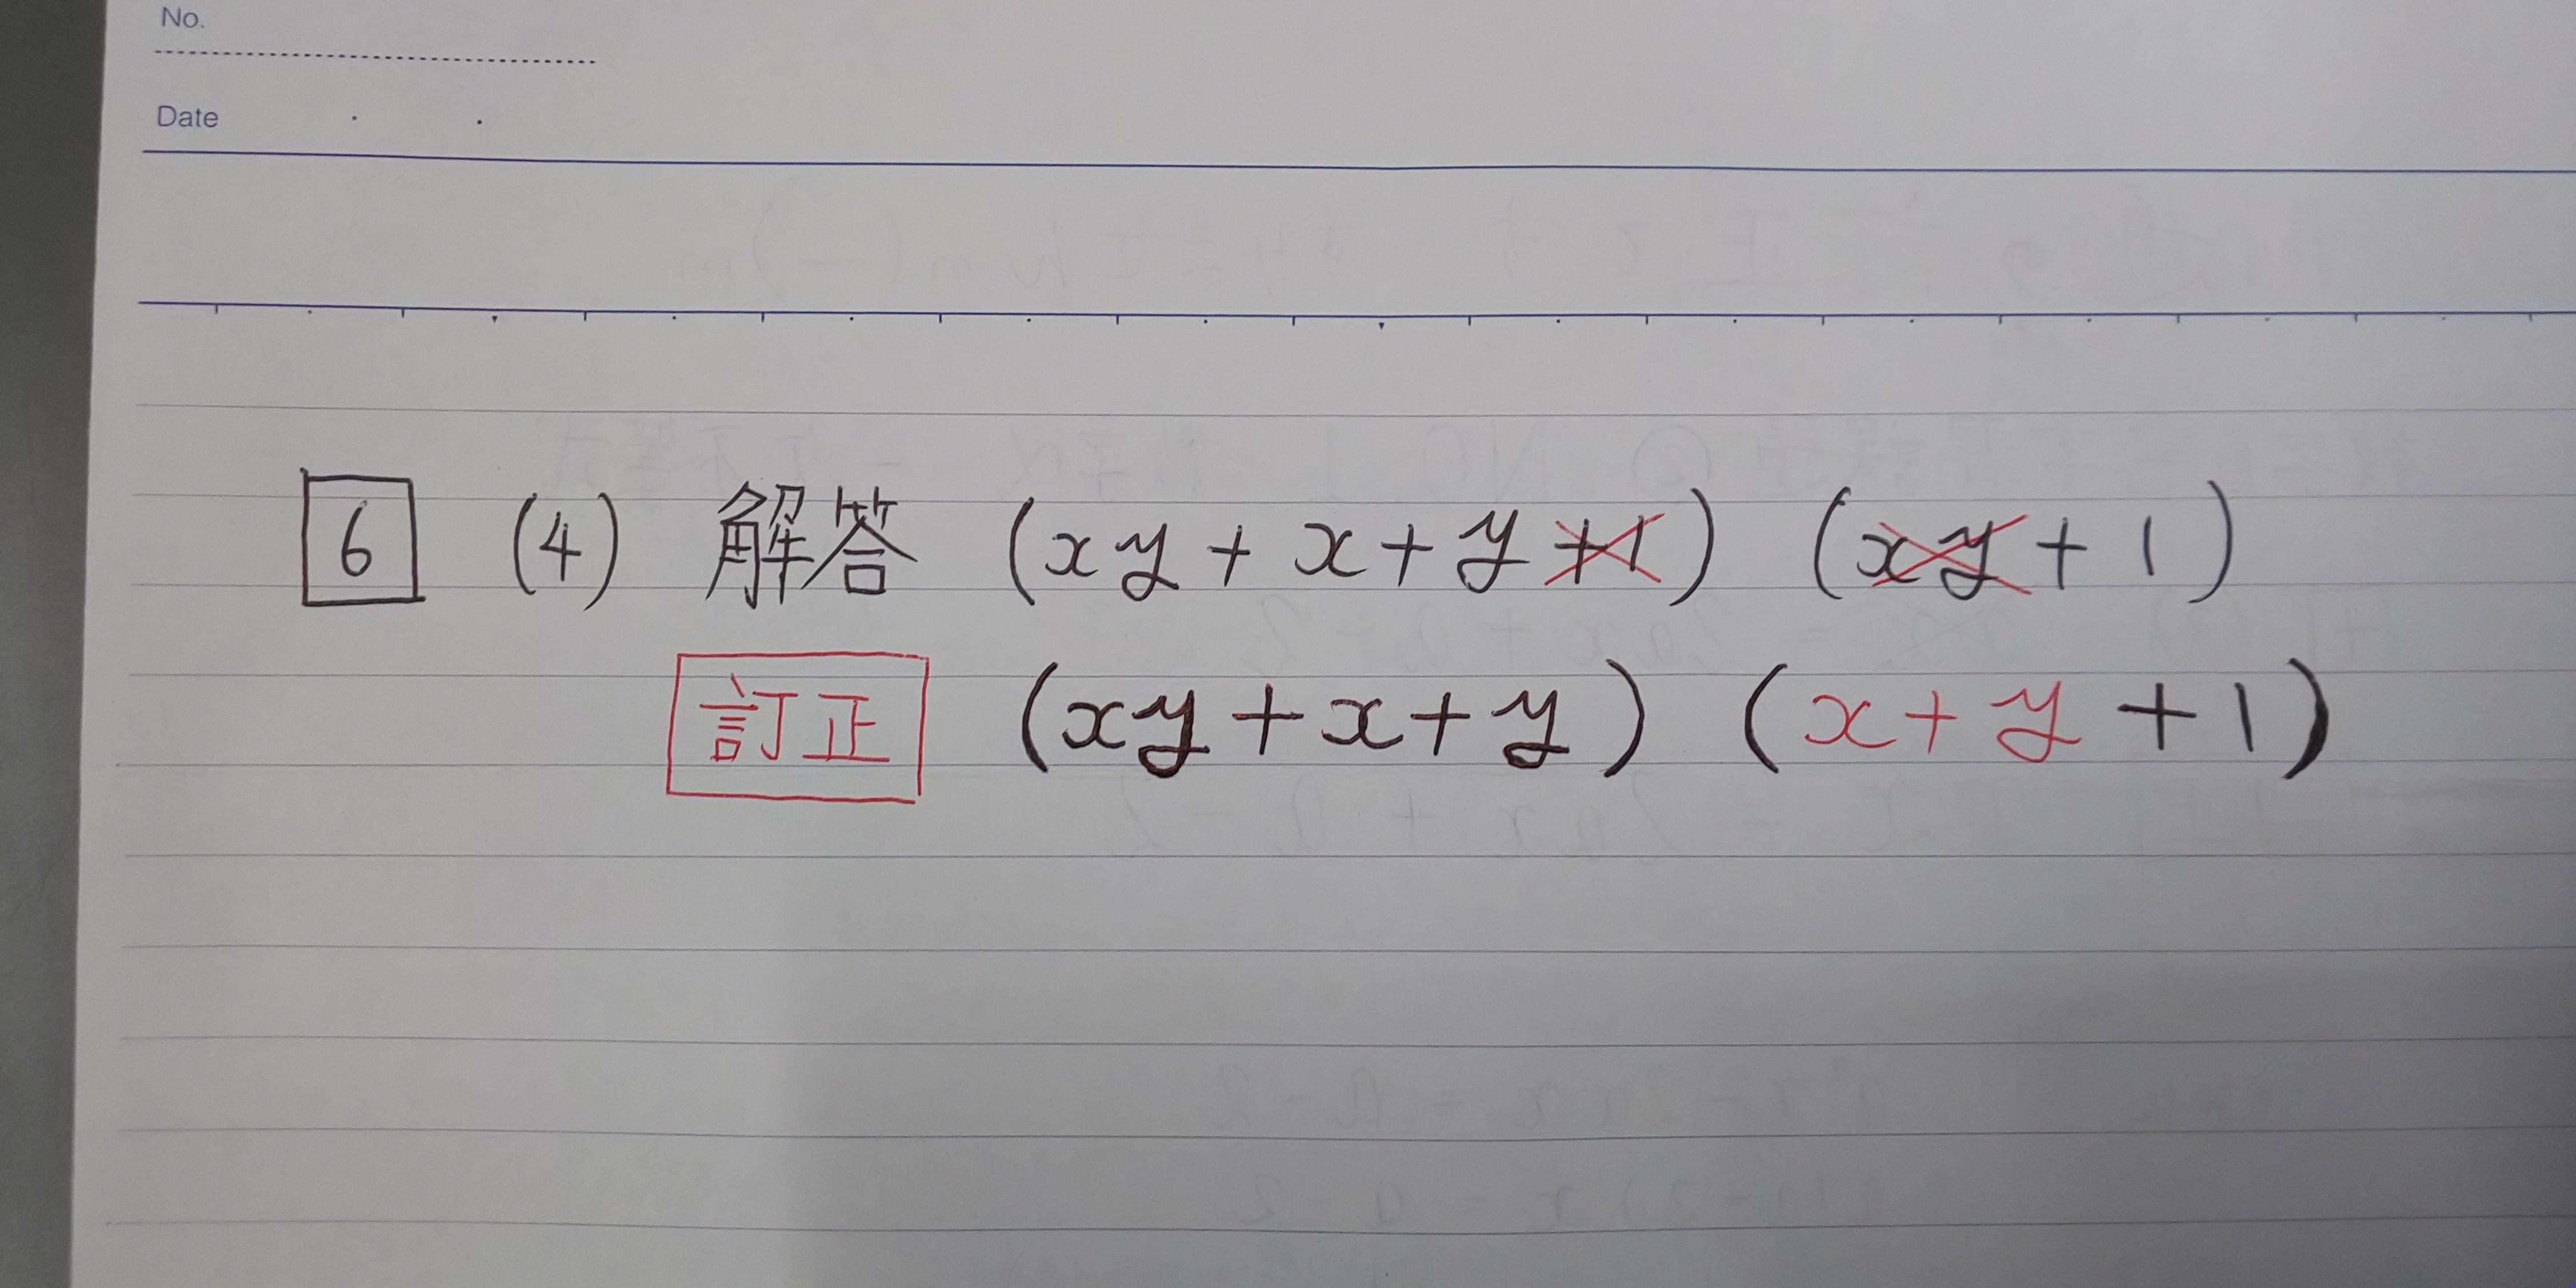 No.
Date
6 (4) 解答 (xy + x + y +1) (xy + 1)
訂正 (xy + x + y) (x + y + 1)